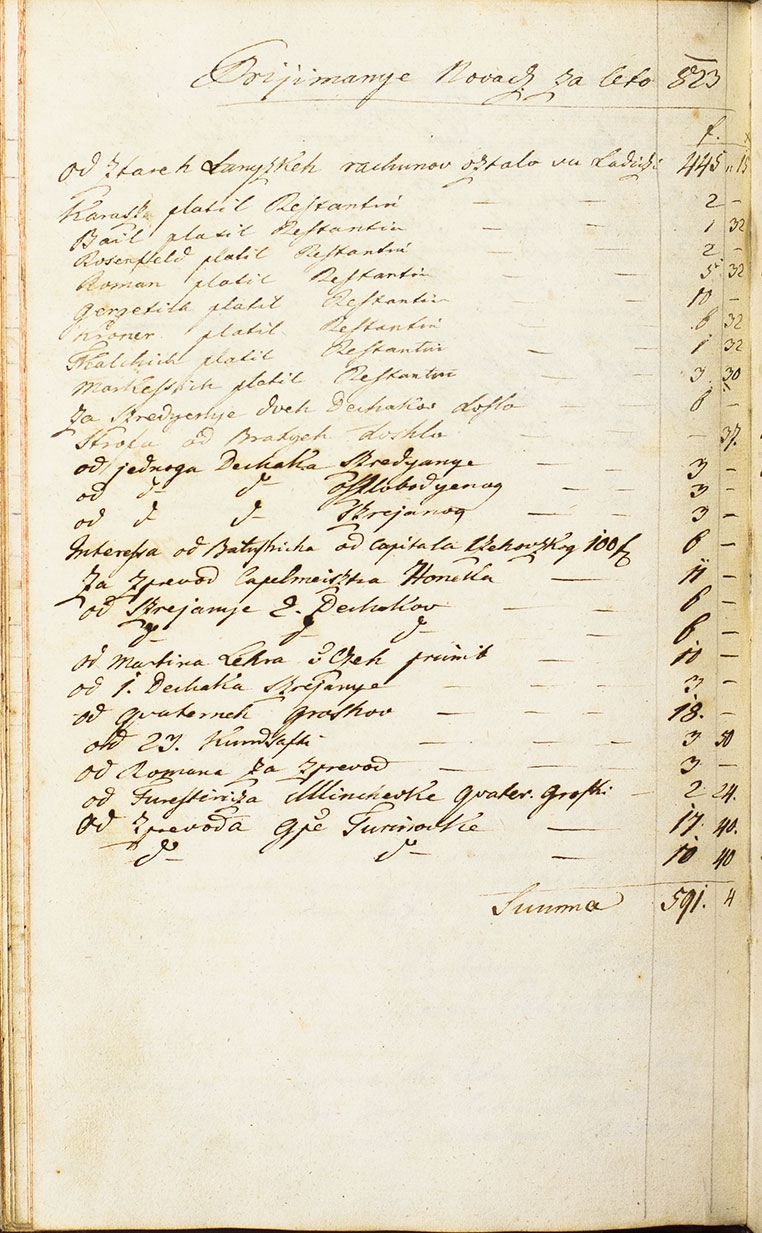 Prijimanye Novacz za leto 823
f. x
od ztareh Lanyzkeh rachunov oztalo vu Ladiczi 445 " 15
Karasz platil Restantiu — — 2 —
Bail platil Restantiu — — 1 32
Rosenfeld platil Restantiu — — 2 —
Roman platil Restantiu — — 5 32
Gerzetich platil Restantiu — — 10 —
Kroner platil Restantiu — — 6 32
Tkalchich platil Restantiu — — 1 32
Markessich platil Restantiu — — 3. 30
Za Skredyenye dveh Dechakov doslo — — 6 —
od Bratych doshlo — — — 37.
od jednoga Dechaka Skredyanye — — 3 —
od d° d° oszlobodyenog — — 3 —
od d° d° Skrejanog — — 3 —
Interessa od od Capitala Czehovzkog 100 f 6 —
Za zprevod Capelmeisztra Honeka — 11 —
od Skrejanye 2. Dechakov — — 6 —
d° d° d° — — 6 —
od Martina Lehra vu Czeh primit — 10 —
od 1. Dechaka Skrejanye — — — 3 —
od quaterneh Groskov — — — 18. —
od 23. Kundsafti — — 3 50
od Romana za zprevod — — — 3 —
od Minchevke quater. Groski — 2. 24.
od Zprevoda Gpe Turinovke — 17. 40.
d° d° — 10 40
Summa 591. 4